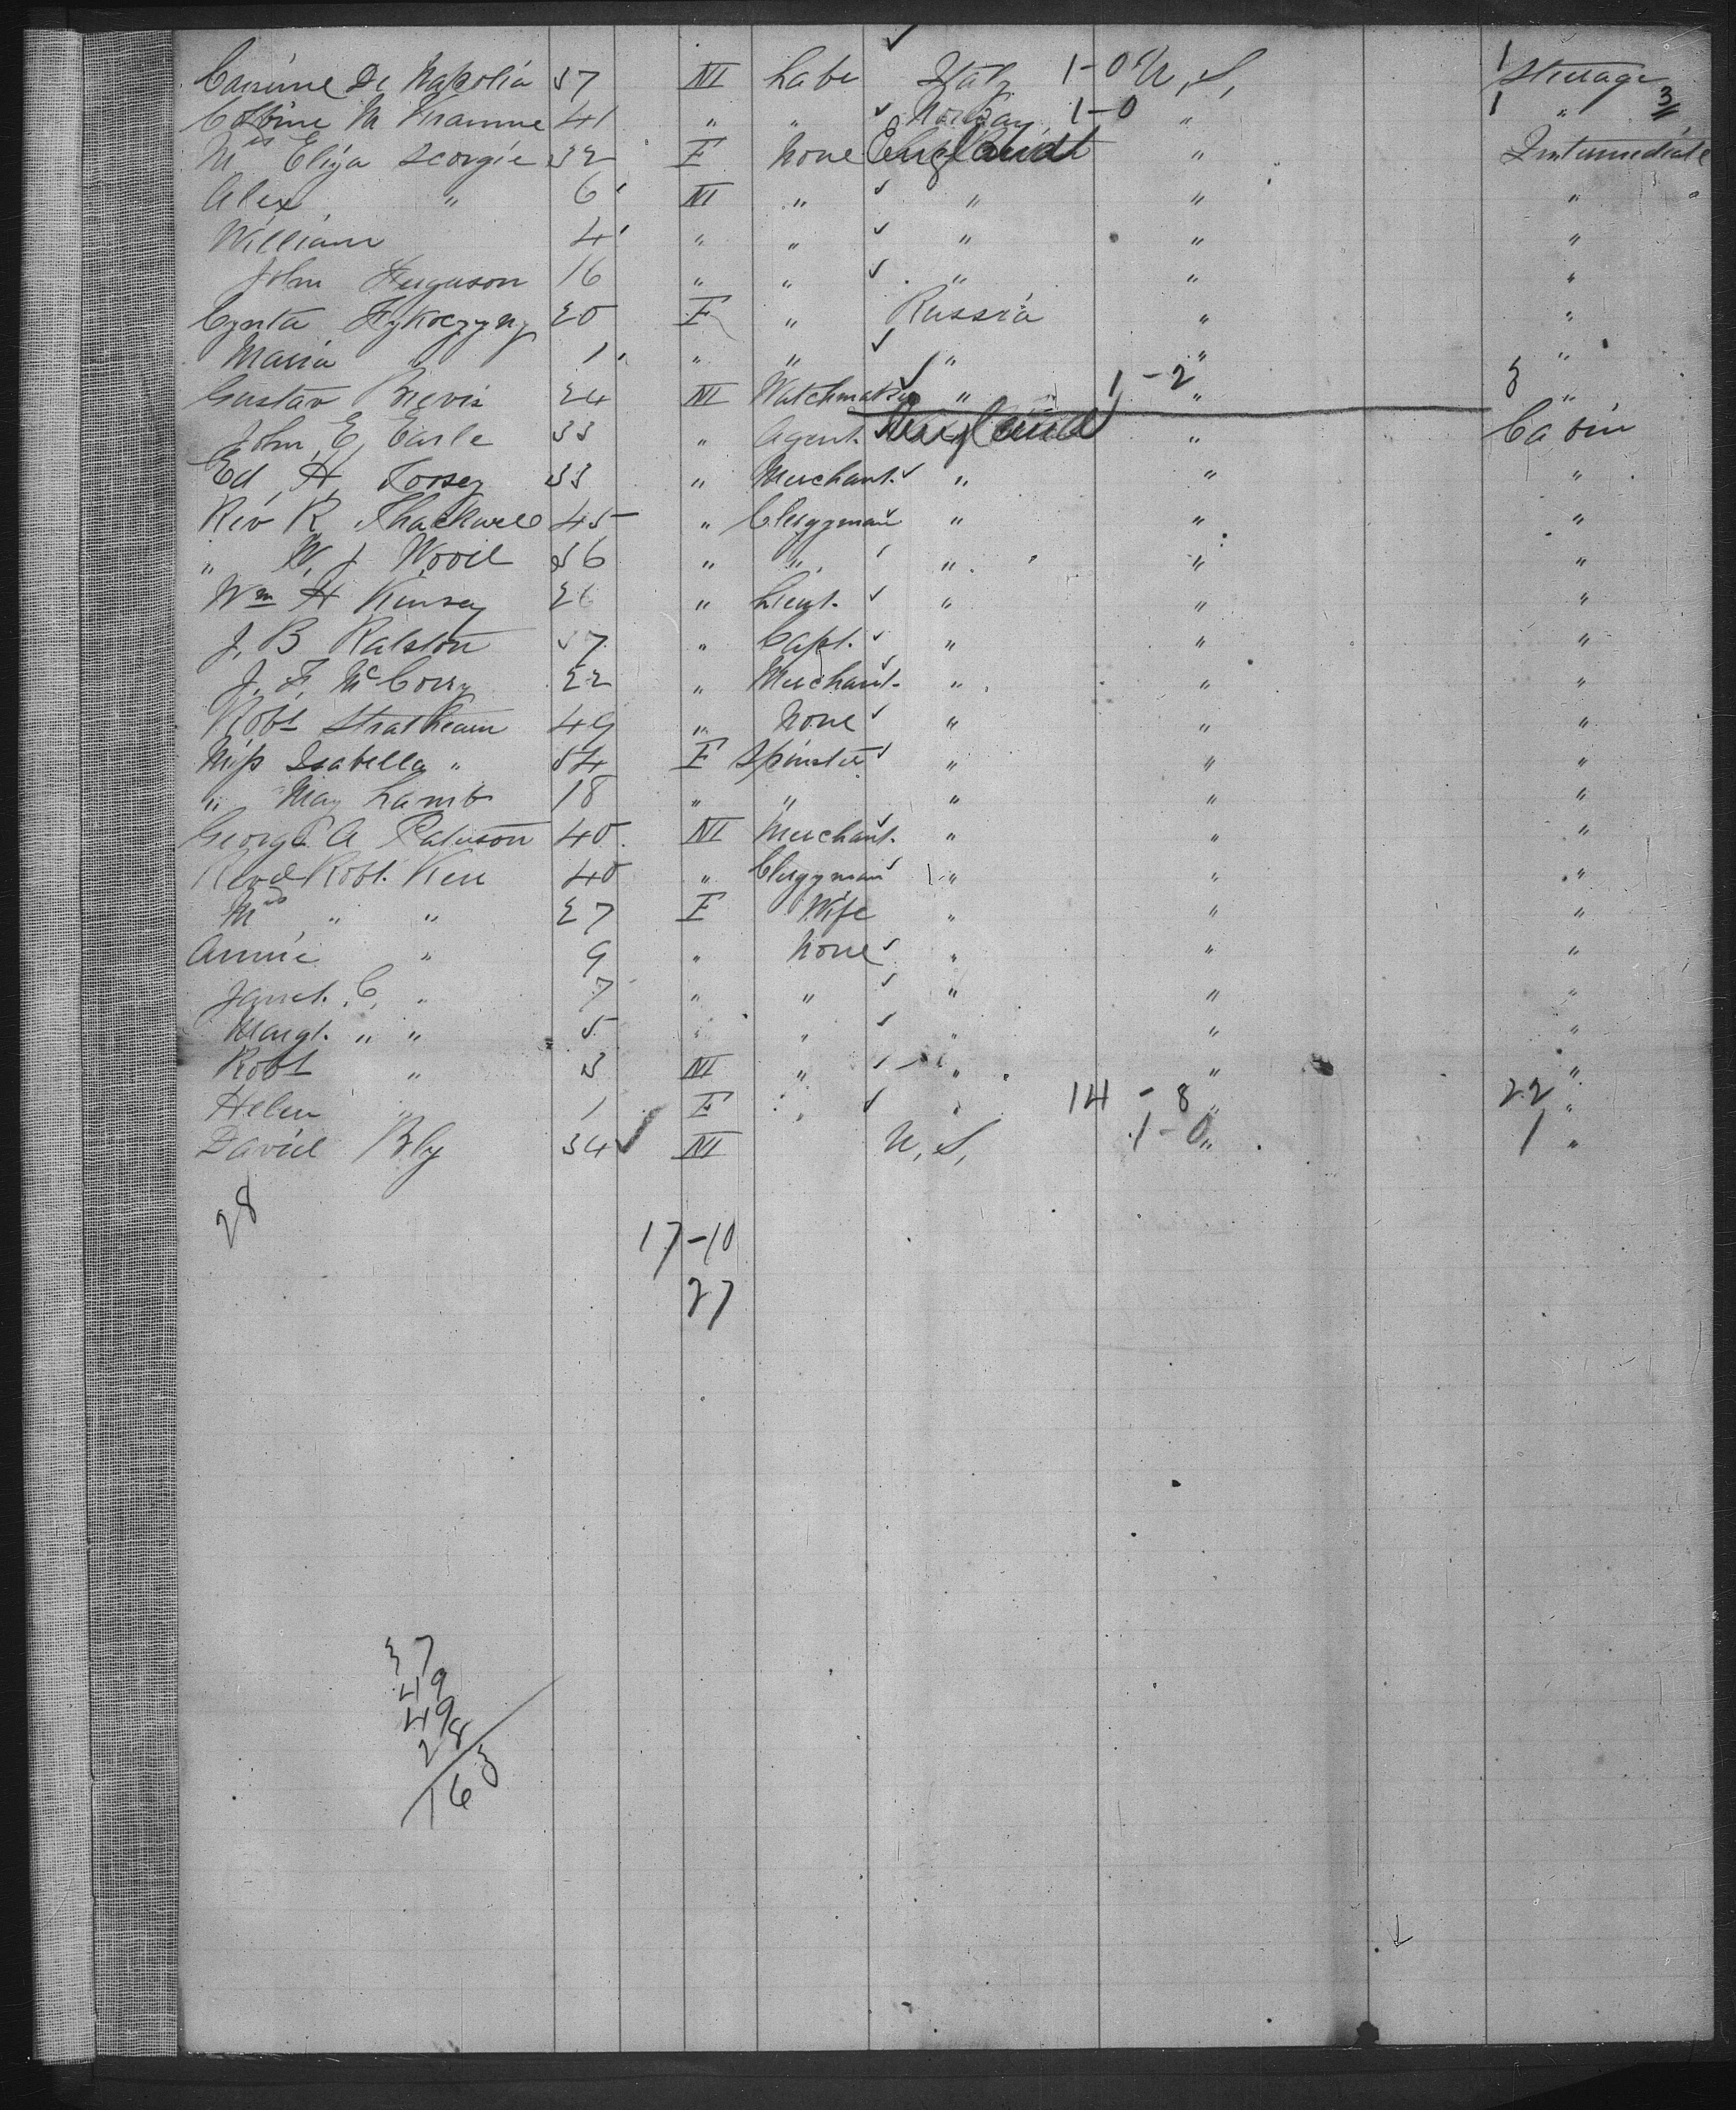 Carmine De Napolia 37 M Labr Italy 1-0 U, S, 1 Steerage
M Kramme 41 " " Norway 1-0 " 1 " 3
Mrs Eliza Scorgie 32 F None England " Intermediate
Alex " 6 M " " " "
William 4 " " " " "
John Ferguson 16 " " " " "
20 F " Russia " "
Maria " 1 " " " " "
Gustav 24 M Watchmaker " 1-2 " 3 "
John E, Earle 33 " Agent. England " Cabin
Ed, H, 33 " Merchant. " " "
Rev R Thackwell 45 " Clergyman " " "
" W, J Wood 36 " " " " "
Wm H Kinsey 26 " Lieut. " " "
J, B Ralston 37 " Capt. " " "
J, F, McCorry 22 " Merchant. " " "
Robt Strathearn 49 " None " " "
Miss Isabella " 54 F Spinster " " "
" May Lamb 18 " " " " "
George A Paterson 40 M Merchant. " " "
Revd Robt. Kerr 40 " Clergyman " " "
Mrs " " 27 F Wife " " "
Annie " 9 " None " " "
Janet. C, " 7 " " " " "
Margt. " " 5 " " " " "
Robt " 3 M " " " "
Helen " 1 F " " 14 - 8 " 22 "
David Bly 34 M U, S, 1-0 " 1 "
28
17-10
27
37
49
49
28
163